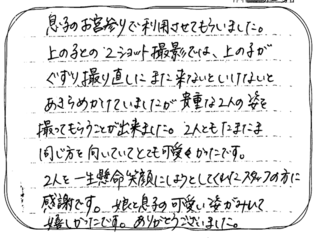 息子のお宮参りで利用させてもらいました。
上の子との2ショット撮影では、上の子が
ぐずり撮り直しにまた来ないといけないと
あきらめかけていましたが貴重な2人の姿を
撮ってもらうことが出来ました。2人ともたまにま
同じ方を向いていてとても可愛いかったです。
2人を一生懸命笑顔にしようとしてくれたスタッフの方に
感謝です。娘と息子の可愛い姿がみれて
嬉しかったです。ありがとうございました。